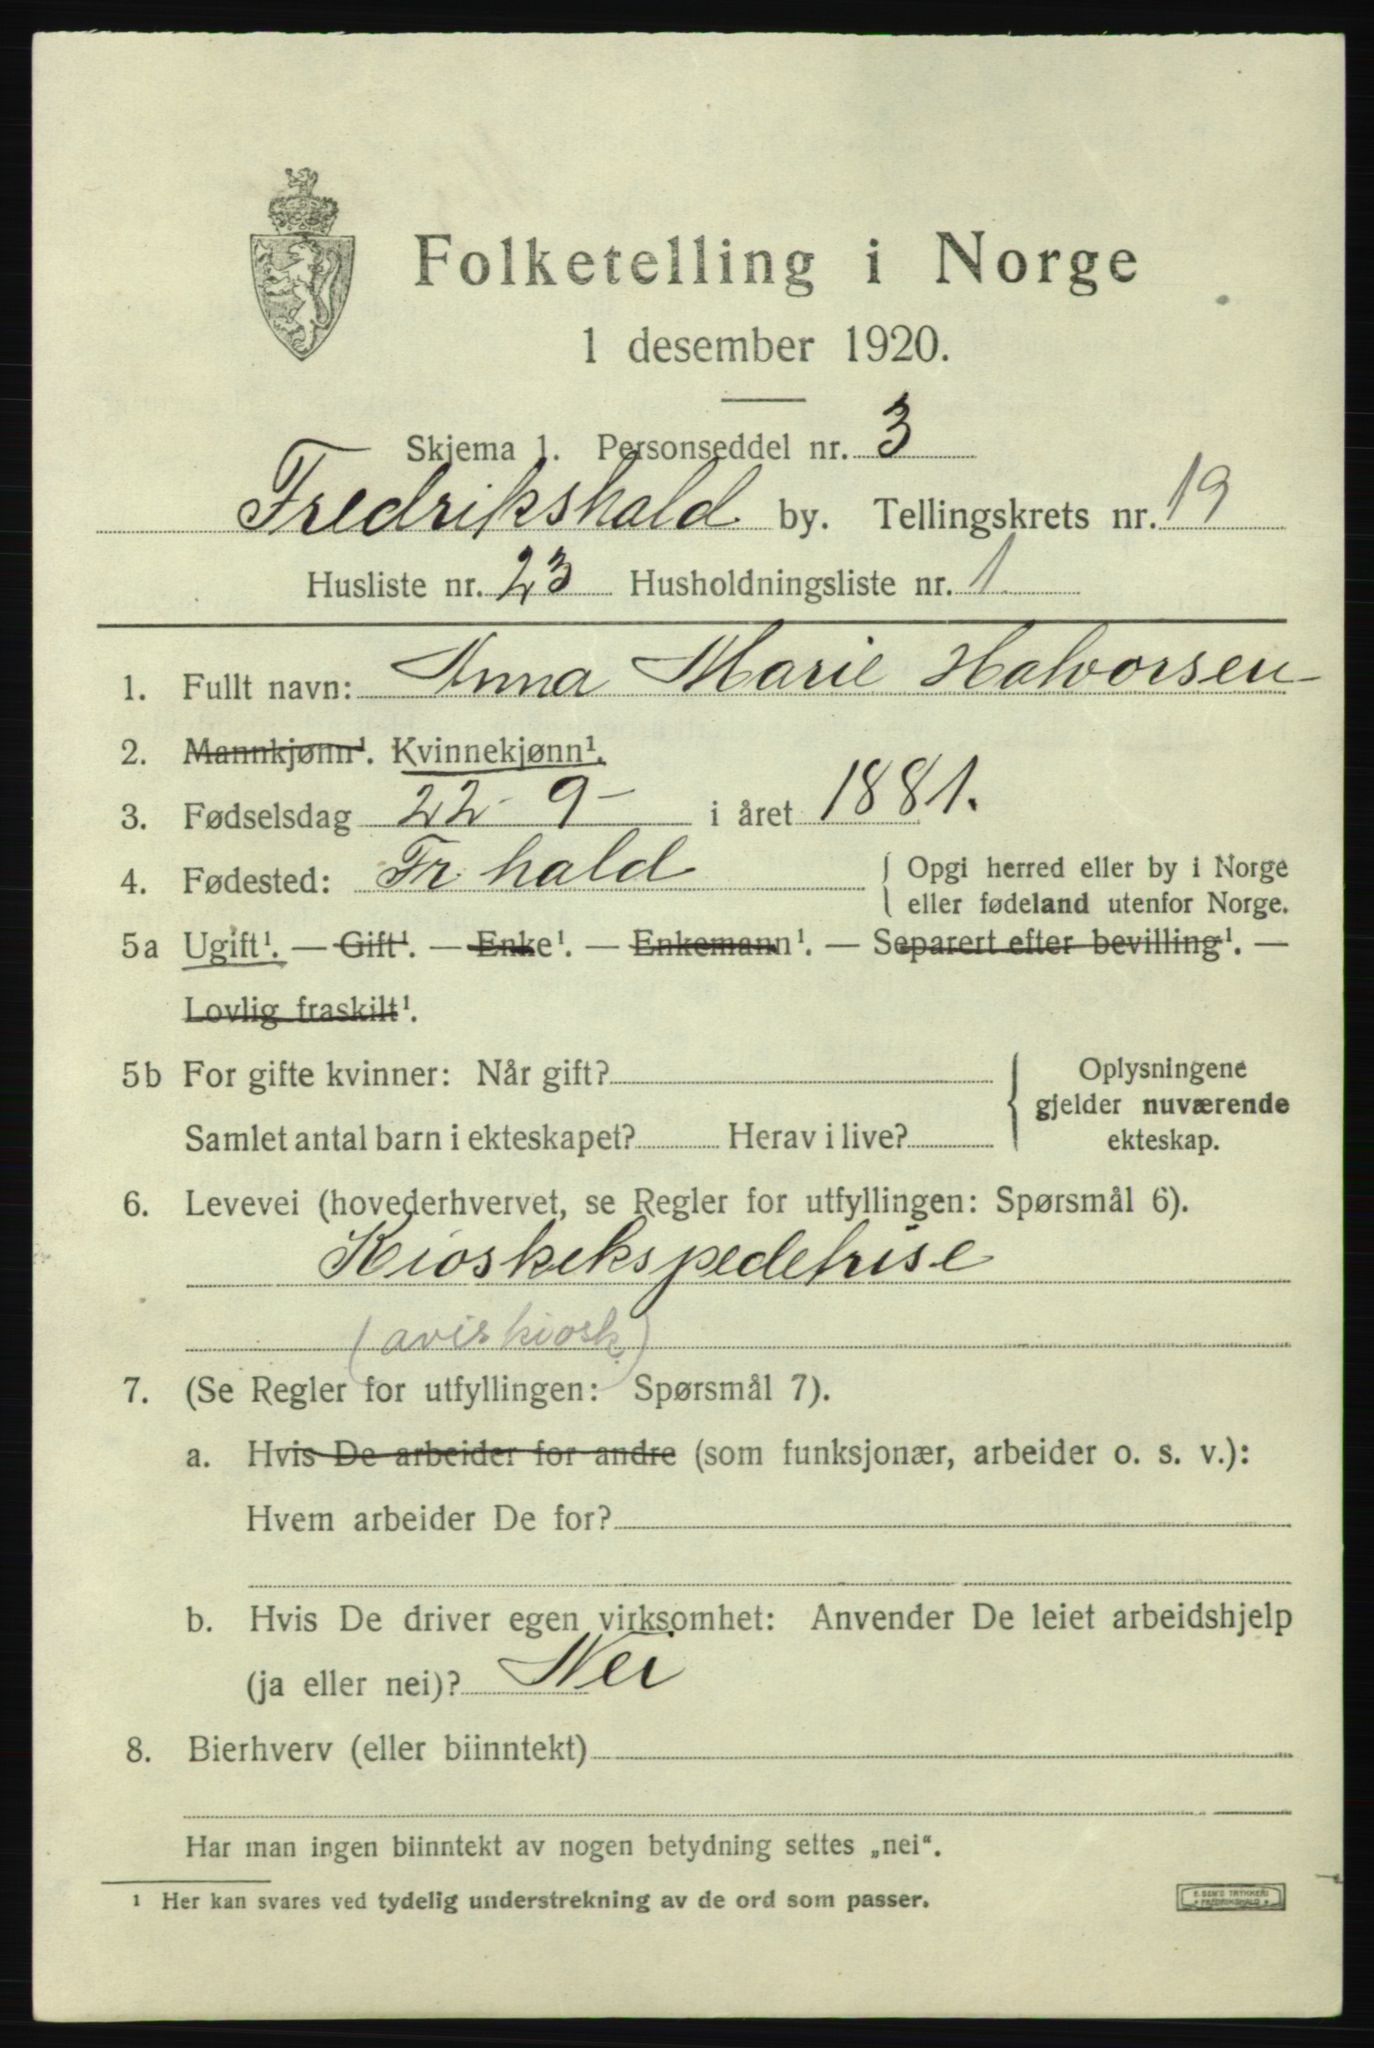 Folketelling i Norge
1 desember 1920.
Skjema 1. Personseddel nr. 3
Fredrikshald by. Tellingskrets nr. 19
Husliste nr. 23 Husholdningsliste nr. 1
1. Fullt navn: Anna Marie Halvorsen
2. Mannkjønn¹. Kvinnekjønn¹.
3. Fødselsdag 22 - 9 - i året 1881.
4. Fødested: Fr.hald { Opgi herred eller by i Norge
eller fødeland utenfor Norge.
5a Ugift¹. — Gift¹. — Enke¹. — Enkemann¹. — Separert efter bevilling¹. —
Lovlig fraskilt¹.
5b For gifte kvinner: Når gift? { Oplysningene
gjelder nuværende
Samlet antal barn i ekteskapet? Herav i live? ekteskap.
6. Levevei (hovederhvervet, se Regler for utfyllingen: Spørsmål 6).
Kioskekspedetrise
(aviskiosk)
7. (Se Regler for utfyllingen: Spørsmål 7).
a. Hvis De arbeider for andre (som funksjonær, arbeider o. s. v.):
Hvem arbeider De for?
b. Hvis De driver egen virksomhet: Anvender De leiet arbeidshjelp
(ja eller nei)? Nei
8. Bierhverv (eller biinntekt)
Har man ingen biinntekt av nogen betydning settes „nei“.
¹ Her kan svares ved tydelig understrekning av de ord som passer.
E. SEM'S TRYKKERI
FREDRIKSHALD